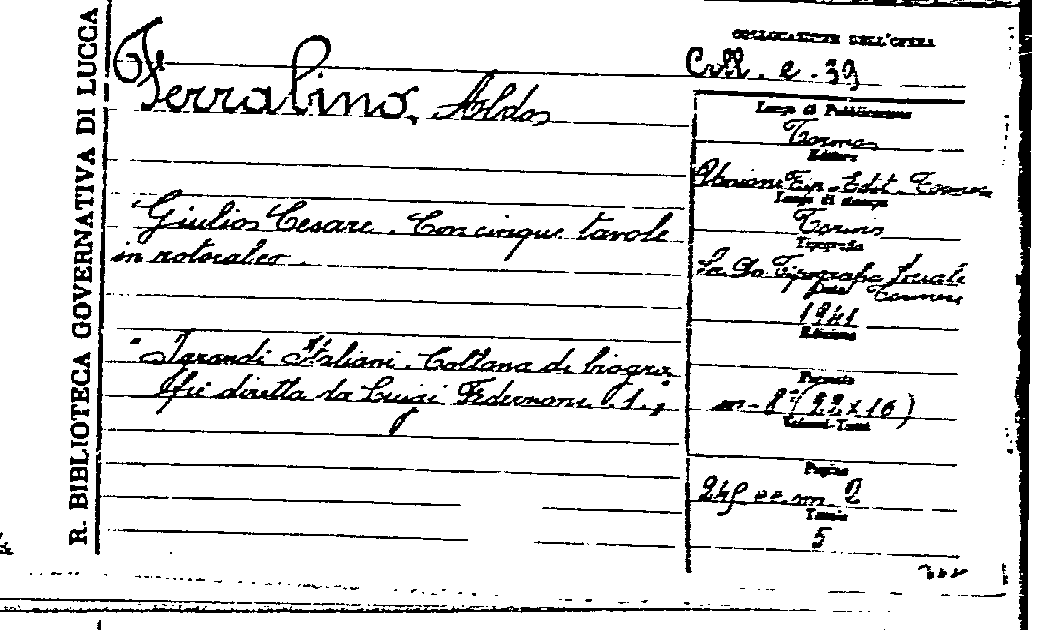 R. BIBLIOTECA GOVERNATIVA DI LUCCA
Ferralino, Aldo
Giulio Cesare. Con cinque tavole
in rotocalco.
"I grandi Italiani. Collana di biogra,
fie diretta da Luigi Federzoni. 1.,
COLLOCAZIONE DELL'OPERA
Coll. e. 39
Luogo di Pubblicazione
Torino
Editore
Unione Tip. Edit. Torinese
Luogo di stampa
Torino
Tipografia
Sociale
Torinese
Data
1941
Edizione
Formato
in-8° (22x16)
Volumi-Tomi
Pagine
2
Tavole
5